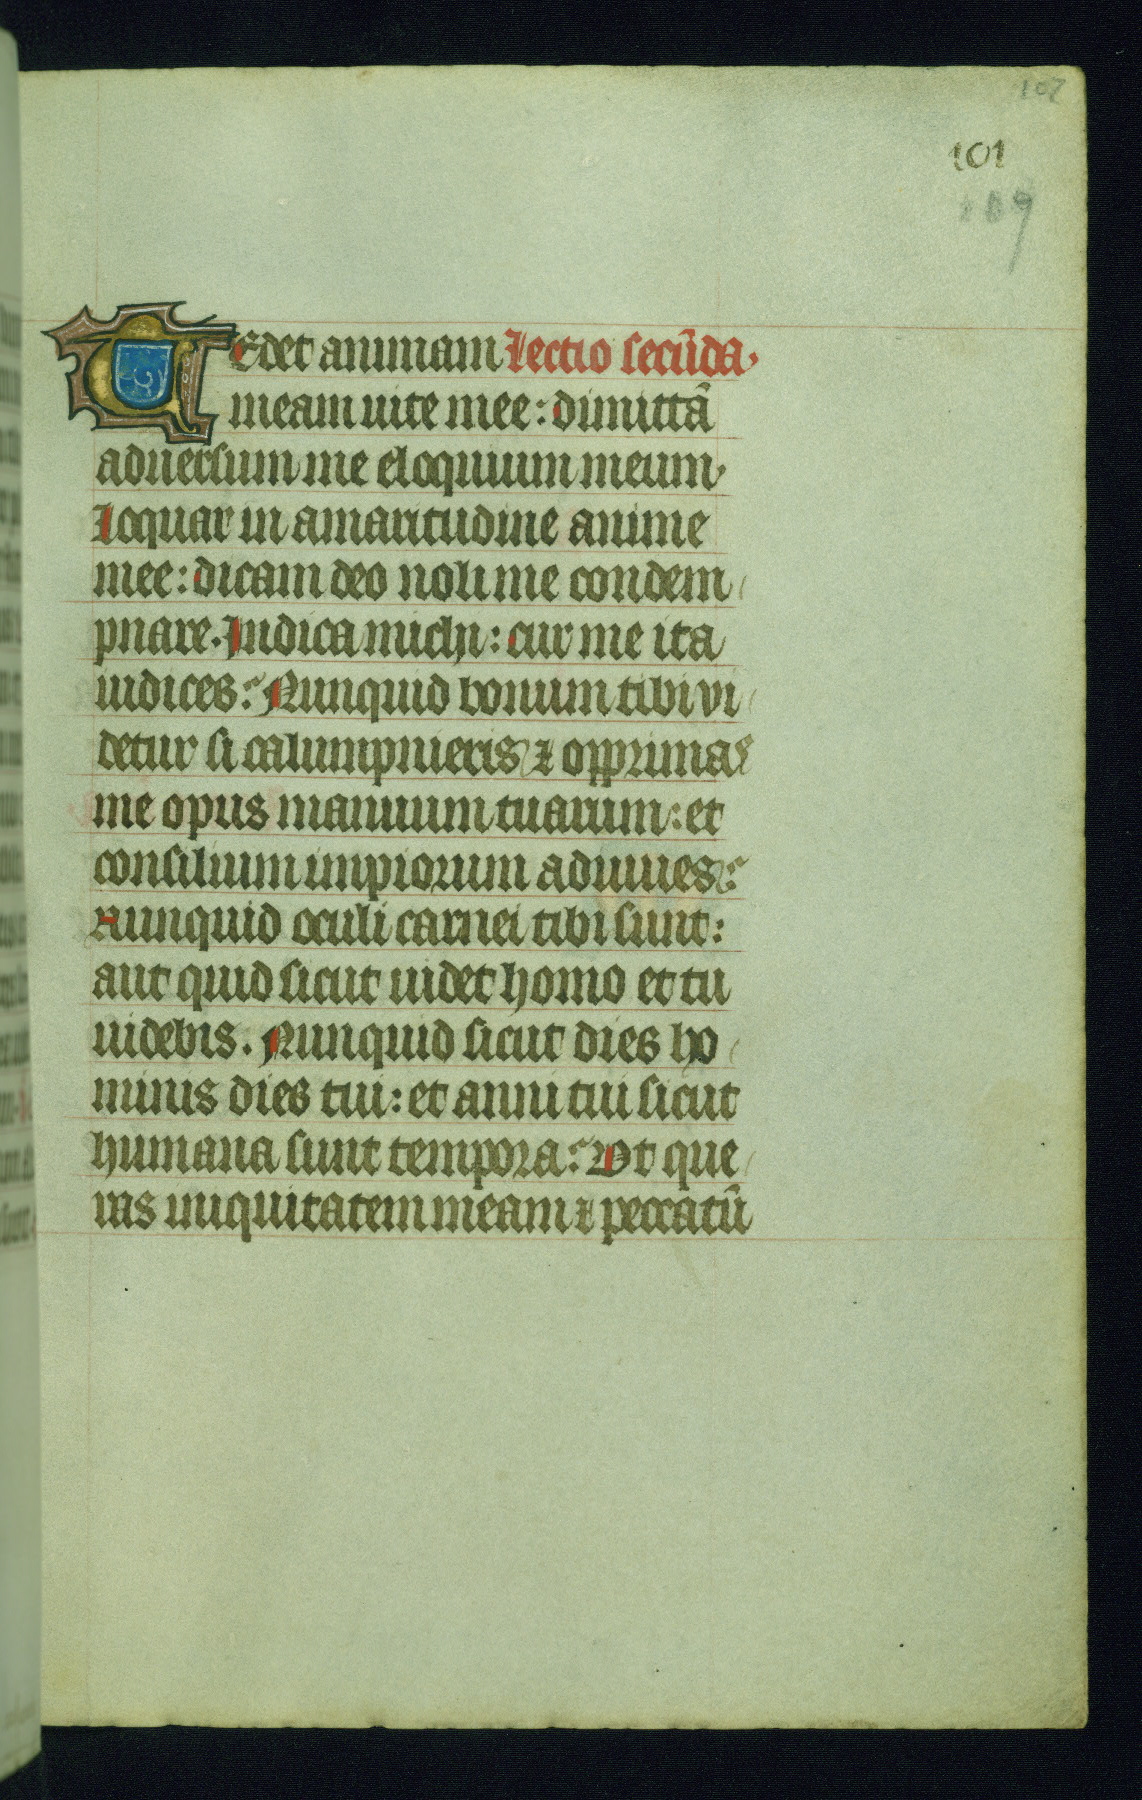 107
101
109
Tedet animam Lectio secūda.
meam uite mee: dimittā
aduersum me eloquium meum.
Loquar in amaritudine anime
mee: dicam deo noli me condem
pnare. Indica michi: cur me ita
iudices: Nunquid bonum tibi vi
detur si calumpnieris ⁊ opprimas
me opus manuum tuarum: et
consilium impiorum adiuues:
Nunquid oculi carnei tibi sunt:
aut quid sicut uidet homo et tu
uidebis. Nunquid sicut dies ho
minis dies tui: et anni tui sicut
humana sunt tempora: Vt que
ras iniquitatem meam ⁊ peccatū